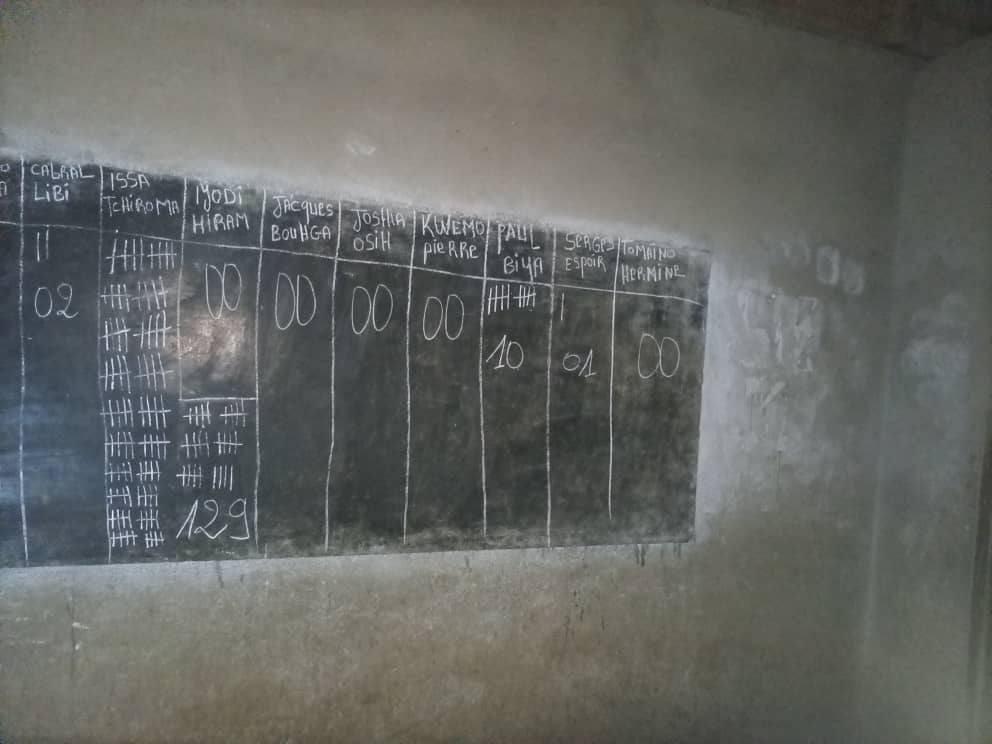 CABRAL
LIBI
02
ISSA
TCHIROMA
IYODI
HIRAM
00
129
JACQUES
BOUHGA
00
JOSHUA
OSIH
00
KWEMO
PIERRE
00
PAUL
BIYA
10
SERGES
ESPOIR
01
TOMAINO
HERMINE
00